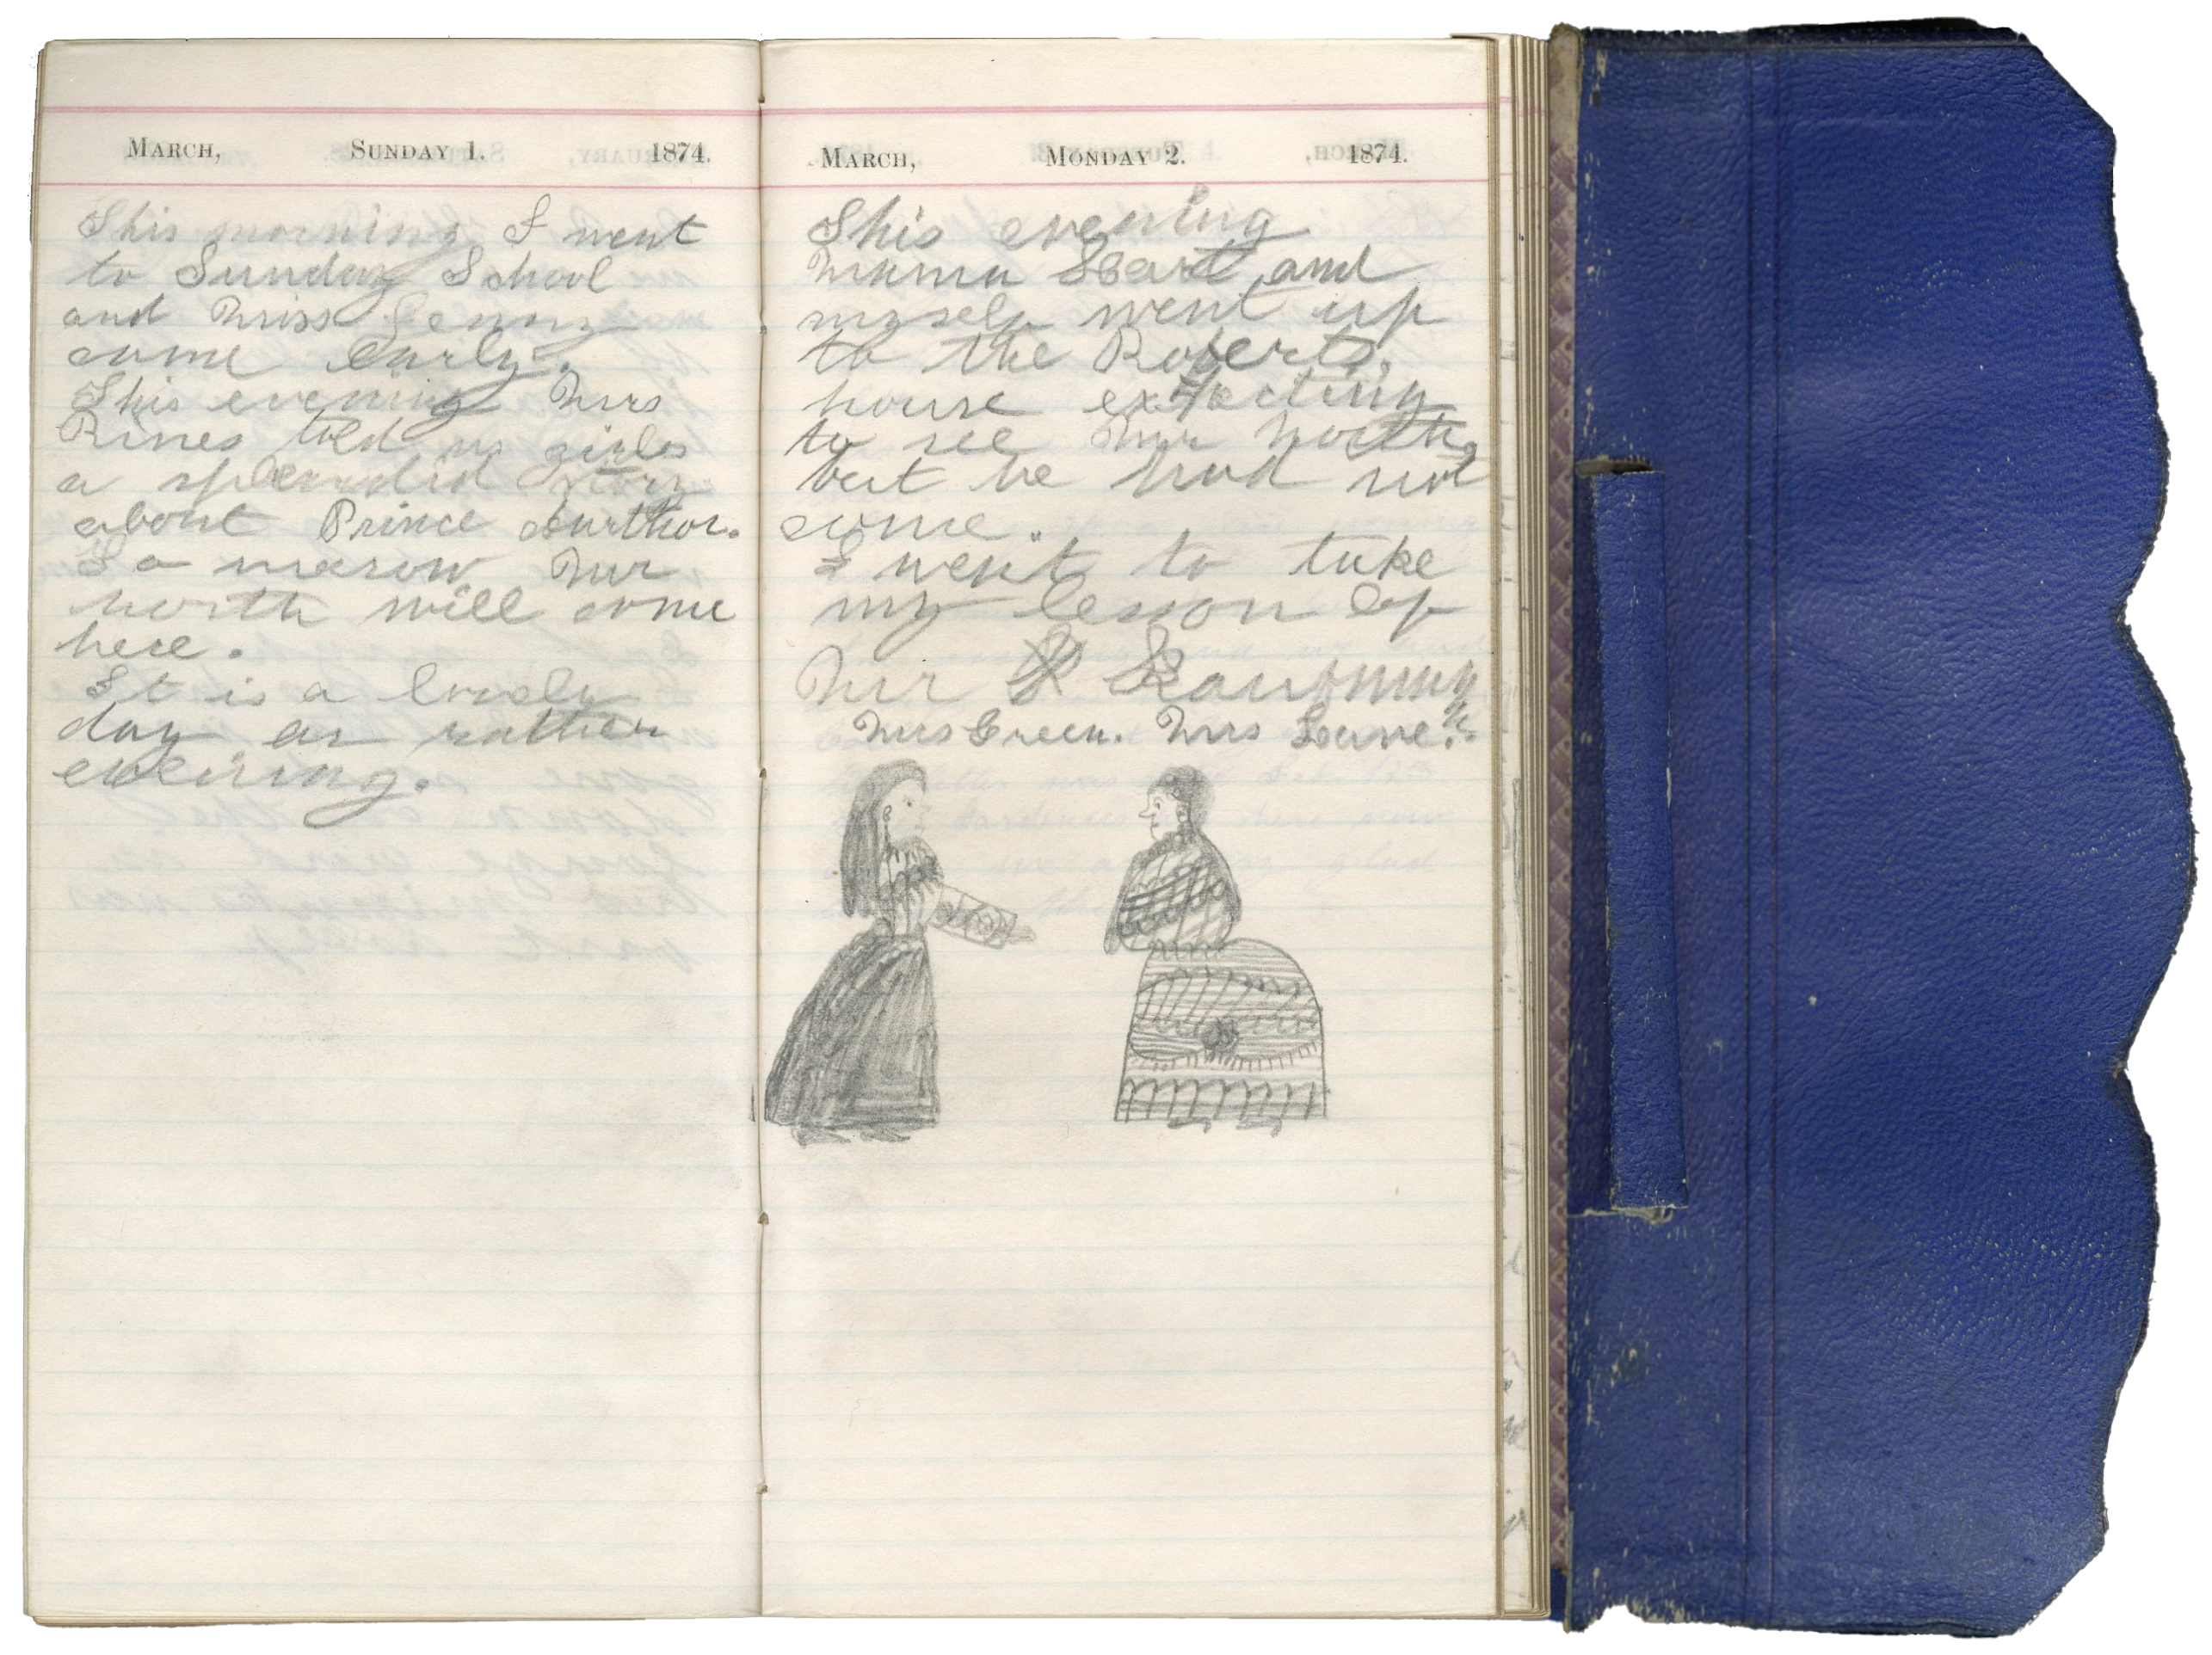 MARCH, SUNDAY 1. 1874.
This morning I went
to Sunday School
and Miss Jenny
came early.
This evening Mrs
Rines told us girls
a splendid story
about Prince Aurthor.
To a morow Mr
North will come
here.
It is a lovely
day or rather
evening.
MARCH, MONDAY 2. 1874.
This evening
Mama and
myself went up
to the Roberts,
house expecting
to see Mr North,
but he had not
come.
I went to take
my lesson of
Mr
Mrs Green. Mrs